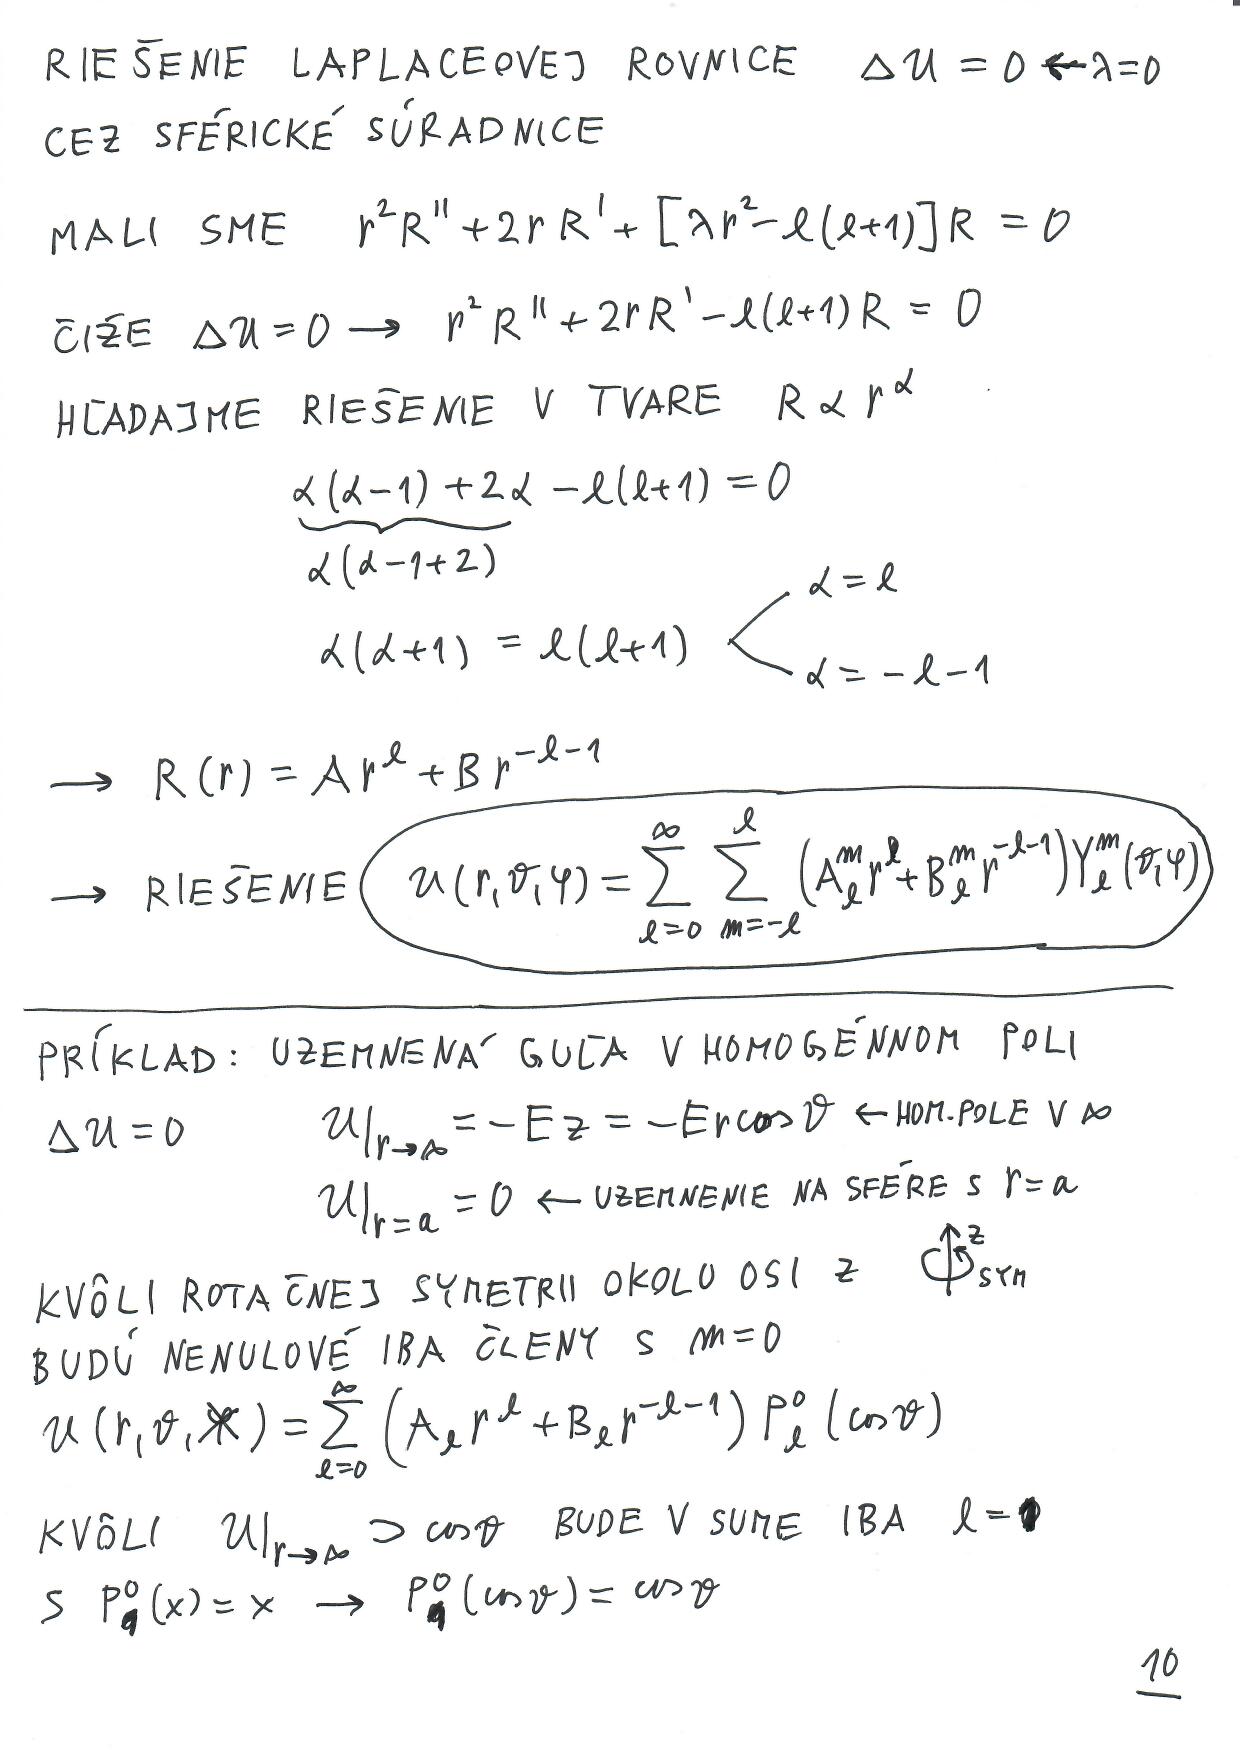 RIEŠENIE LAPLACEOVEJ ROVNICE ΔU = 0 ← λ=0
CEZ SFÉRICKÉ SÚRADNICE
MALI SME r²R'' + 2rR' + [λr² − ℓ(ℓ+1)]R = 0
ČIŽE ΔU = 0 → r²R'' + 2rR' − ℓ(ℓ+1)R = 0
HĽADAJME RIEŠENIE V TVARE R α r^α
α(α−1) + 2α − ℓ(ℓ+1) = 0
α(α−1+2)
α = ℓ
α(α+1) = ℓ(ℓ+1)
α = −ℓ−1
→ R(r) = A r^ℓ + B r^{−ℓ−1}
→ RIEŠENIE U(r,ϑ,φ) = ∑_{ℓ=0}^{∞} ∑_{m=−ℓ}^{ℓ} (A_ℓ^m r^ℓ + B_ℓ^m r^{−ℓ−1}) Y_ℓ^m(ϑ,φ)
PRÍKLAD: UZEMNENÁ GUĽA V HOMOGÉNNOM POLI
ΔU = 0 U|_{r→∞} = −Ez = −Er cosϑ ← HOM. POLE V ∞
U|_{r=a} = 0 ← UZEMNENIE NA SFÉRE S r=a
KVÔLI ROTAČNEJ SYMETRII OKOLO OSI Z z SYM
BUDÚ NENULOVÉ IBA ČLENY S m=0
U(r,ϑ, ) = ∑_{ℓ=0}^{∞} (A_ℓ r^ℓ + B_ℓ r^{−ℓ−1}) P_ℓ^0(cosϑ)
KVÔLI U|_{r→∞} ⊃ cosϑ BUDE V SUME IBA ℓ=1
S P_1^0(x) = x → P_1^0(cosϑ) = cosϑ
10